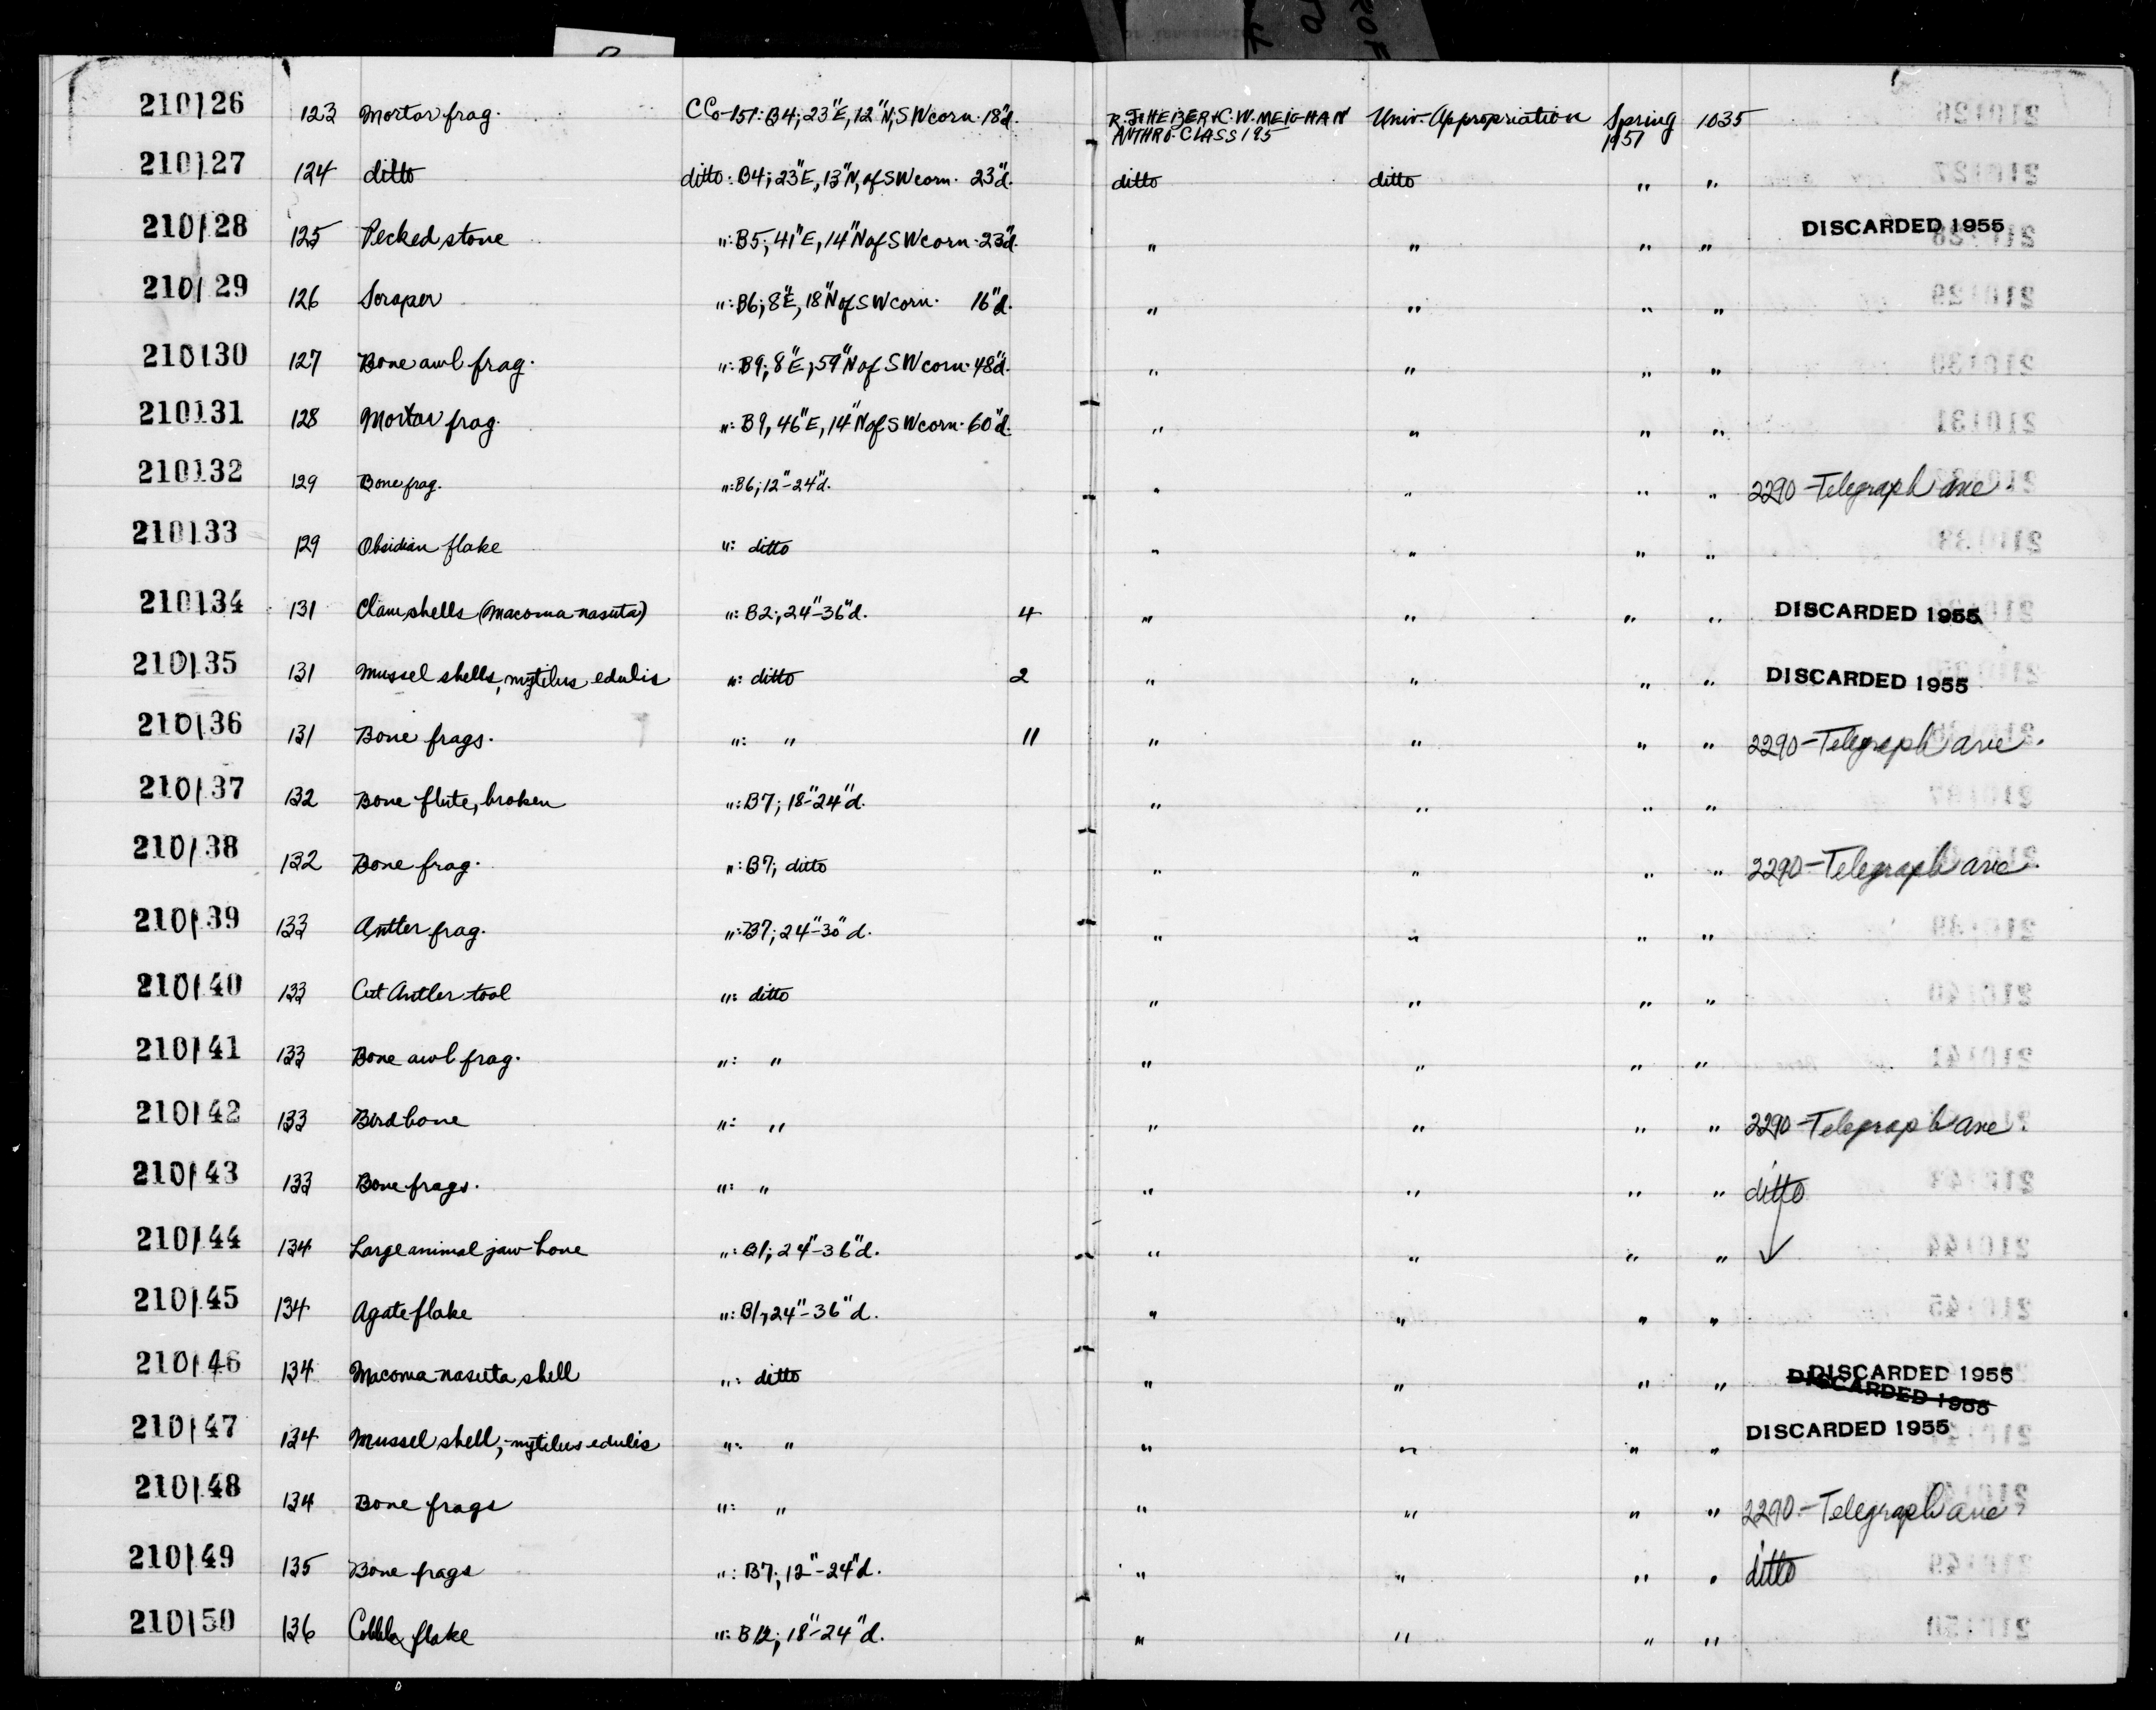 210126 123 Mortar frag. CCo-151: B4; 23"E, 12"N, SW corn. 18"d. R.F. HEIZER & C.W. MEIGHAN Univ. Appropriation Spring 1035
ANTHRO. CLASS 195 1951
210127 124 ditto ditto: B4; 23"E, 13"N, of SW corn. 23"d. ditto ditto " "
210128 125 Pecked stone ": B5; 41"E, 14"N of SW corn. 23"d. " " " " DISCARDED 1955
210129 126 Scraper ": B6; 8"E, 18"N of SW corn. 16"d. " " " "
210130 127 Bone awl frag. ": B9; 8"E, 59"N of SW corn. 48"d. " " " "
210131 128 Mortar frag. ": B9, 46"E, 14"N of SW corn. 60"d. " " " "
210132 129 Bone frag. ": B6; 12"-24"d. " " " " 2290-Telegraph ave.
210133 129 Obsidian flake ": ditto " " " "
210134 131 Clam shells (Macoma nasuta) ": B2; 24"-36"d. 4 " " " " DISCARDED 1955
210135 131 Mussel shells, mytilus edulis ": ditto 2 " " " " DISCARDED 1955
210136 131 Bone frags. ": " 11 " " " " 2290-Telegraph ave.
210137 132 Bone flute, broken ": B7; 18"-24"d. " " " "
210138 132 Bone frag. ": B7; ditto " " " " 2290-Telegraph ave.
210139 133 Antler frag. ": B7; 24"-30"d. " " " "
210140 133 Cut Antler tool ": ditto " " " "
210141 133 Bone awl frag. ": " " " " "
210142 133 Bird bone ": " " " " " 2290-Telegraph ave.
210143 133 Bone frags. ": " " " " " ditto
210144 134 Large animal jaw bone ": B1; 24"-36"d. " " " "
210145 134 Agate flake ": B1, 24"-36"d. " " " "
210146 134 Macoma nasuta shell ": ditto " " " " DISCARDED 1955
DISCARDED 1955
210147 134 Mussel shell, mytilus edulis ": " " " " " DISCARDED 1955
210148 134 Bone frags ": " " " " " 2290-Telegraph ave.
210149 135 Bone frags ": B7; 12"-24"d. " " " " ditto
210150 136 Cobble flake ": B12; 18"-24"d. " " " "